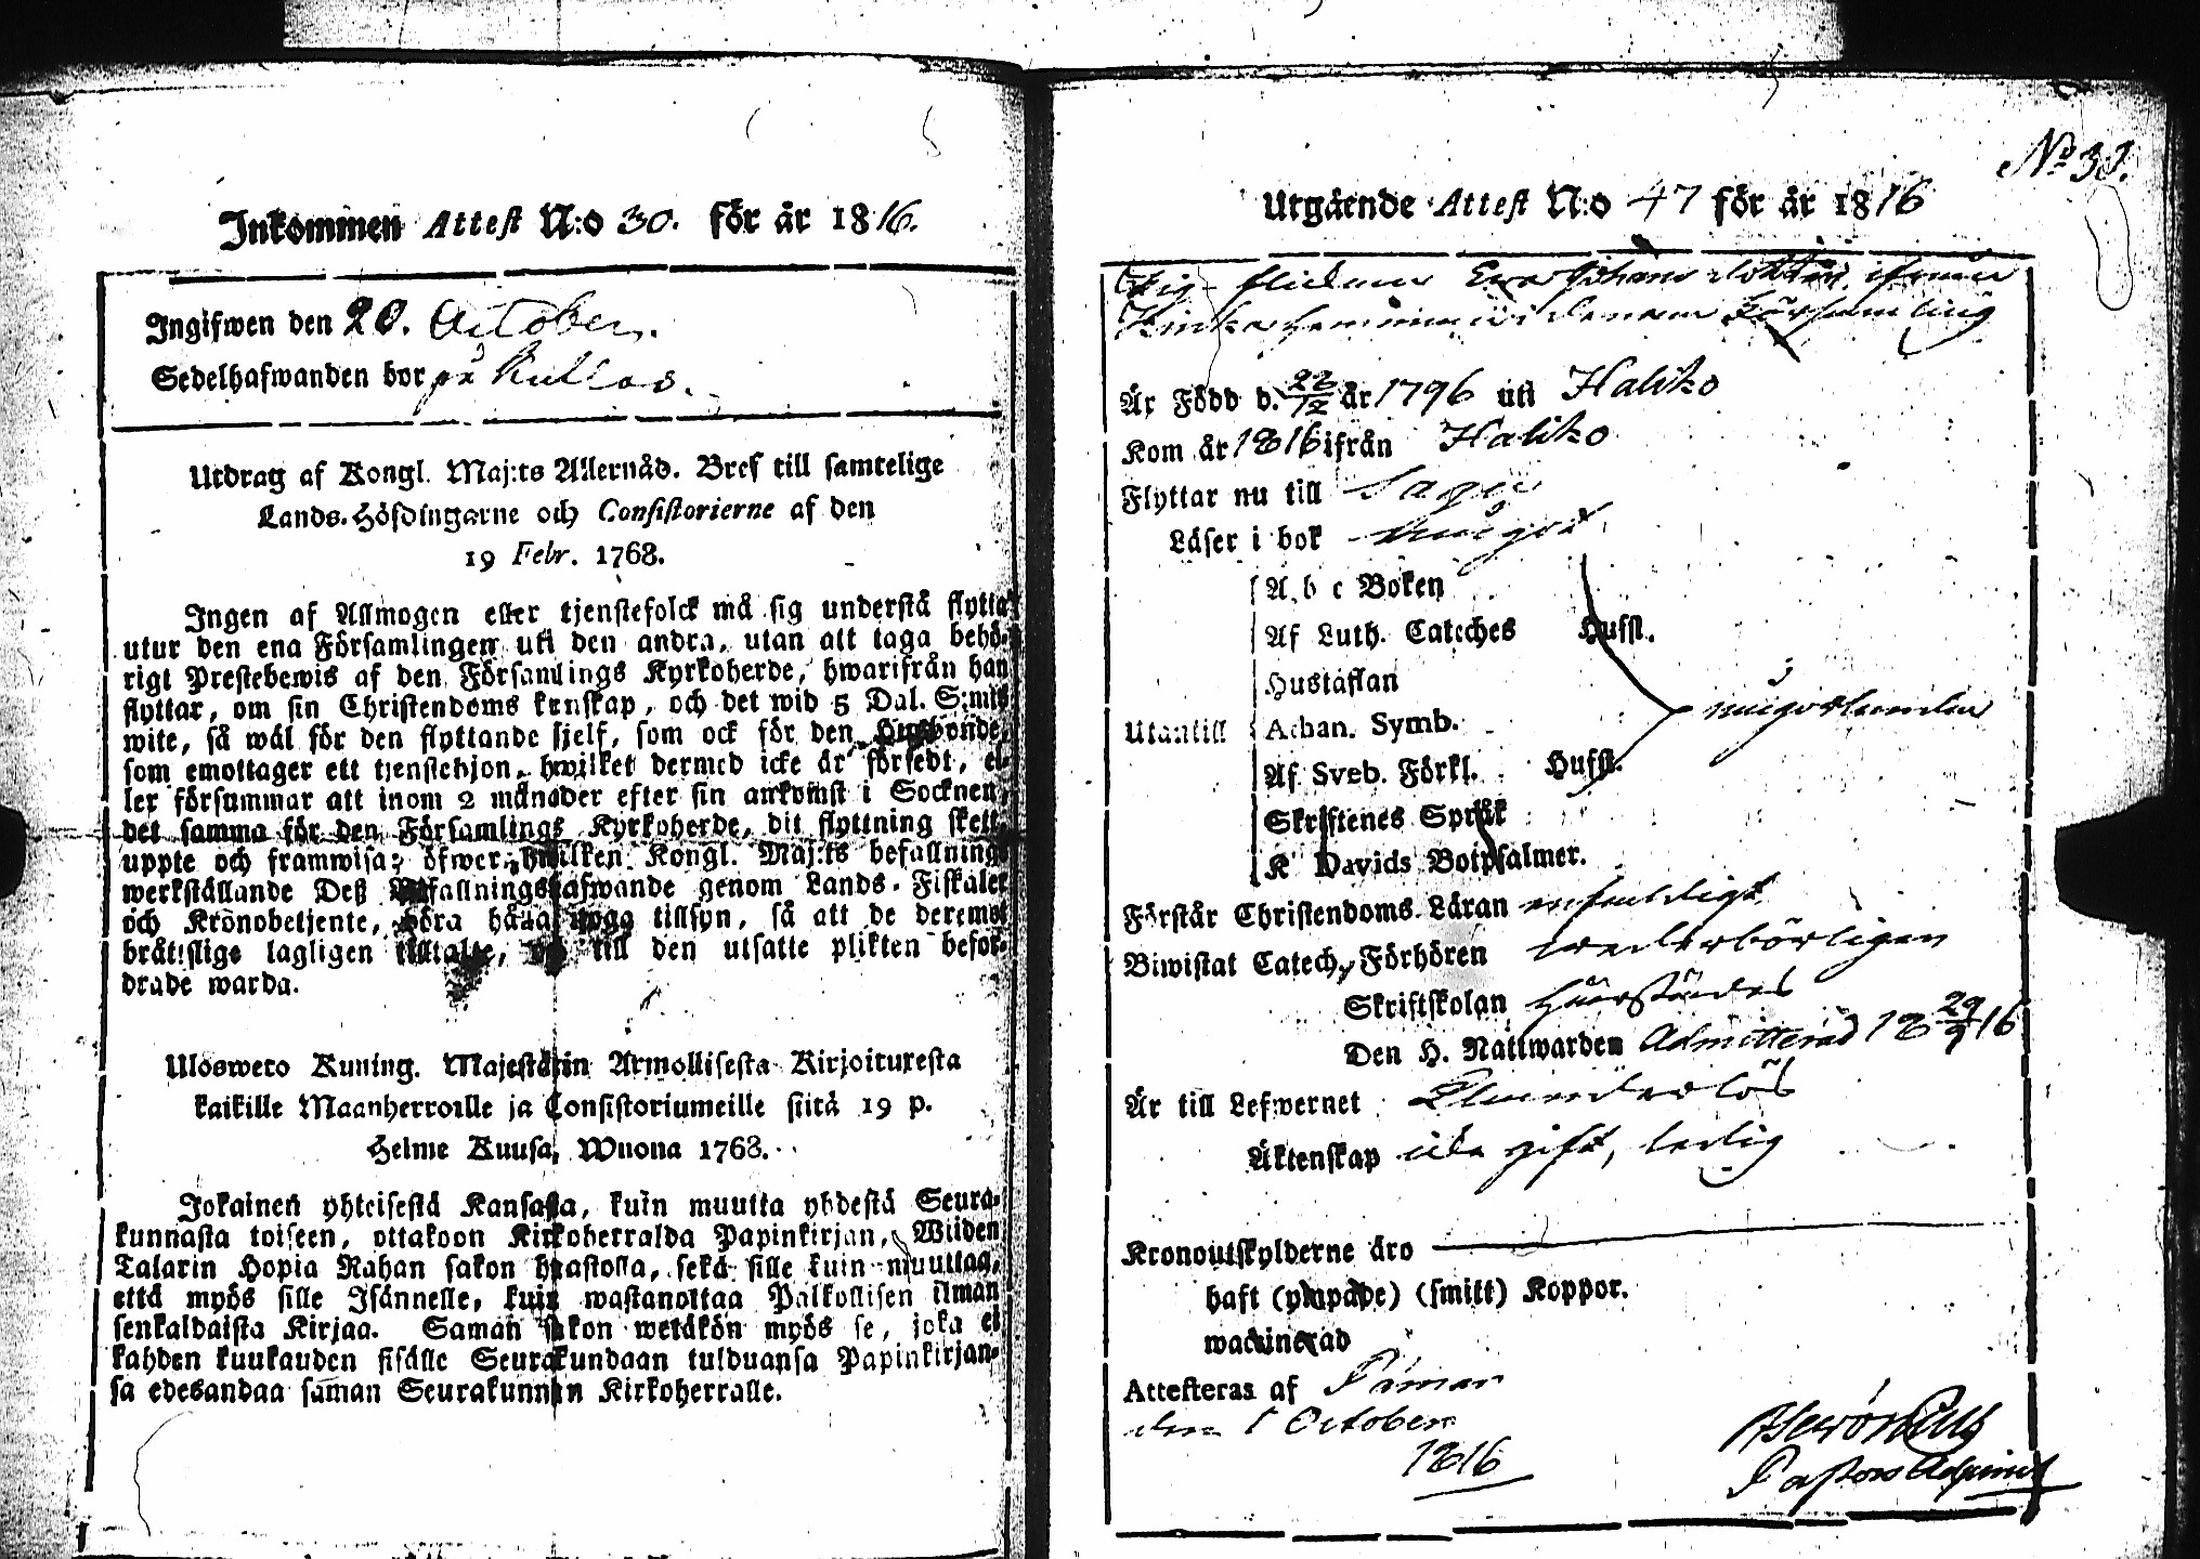 Inkommen Attest N:o 30. för år 1816.
Ingifwen den 20. October.
Sedelhafwanden bor på Kullas.
Utdrag af Kongl. Maj:ts Allernåd. Bref till samtelige
Lands-Höfdingarne och Consistorierne af den
19 Febr. 1768.
Ingen af Allmogen eller tjenstefolck må sig understå flytta
utur den ena Församlingen uti den andra, utan att taga behö-
rigt Prestebewis af den Församlings Kyrkoherde, hwarifrån han
flyttar, om sin Christendoms kunskap, och det wid 5 Dal. S:mts
wite, så wäl för den flyttande sjelf, som ock för den Husbonde,
som emottager ett tjenstehjon, hwilket dermed icke är försedt, el-
ler försummar att inom 2 månader efter sin ankomst i Socknen,
det samma för den Församlings Kyrkoherde, dit flyttning skett,
uppte och framwisa; öfwer hwilken Kongl. Maj:ts befallnings
werkställande Deß Befallningshafwande genom Lands-Fiskaler
och Kronobetjente, böra hafwa noga tillsyn, så att de deremot
bråtslige lagligen tilltalte, och till den utsatte plikten befor-
drade warda.
Ulosweto Kuning. Majestätin Armollisesta Kirjoituxesta
kaikille Maanherroille ja Consistoriumeille siitä 19 p.
Helme Kuusa, Wuona 1768.
Jokainen yhteisestä Kansasta, kuin muutta yhdestä Seura-
kunnasta toiseen, ottakoon Kirkoherralda Papinkirjan, Wiiden
Talarin Hopia Rahan sakon haastolla, sekä sille kuin muuttaa,
että myös sille Isännelle, kuin wastanottaa Palkollisen ilman
senkaldaista Kirjaa. Saman sakon wetäkön myös se, joka ei
kahden kuukauden sisälle Seurakundaan tulduansa Papinkirjan-
sa edesandaa saman Seurakunnan Kirkoherralle.
No 30.
Utgående Attest N:o 47 för år 1816
Pig flickan Eva Johans dotter, ifrån
hemman i denna Församling
Är Född d. 22/12 år 1796 uti Haliko
Kom år 1816 ifrån Haliko
Flyttar nu till Sagu
Läser i bok något
A, b c Boken
Af Luth. Cateches Hufst.
Hustaflan
Utantill Athan. Symb. någorlunda
Af Sveb. Förkl. Hufst.
Skriftenes Språk
K Davids Botpsalmer.
Förstår Christendoms-Läran enfaldigt
Biwistat Catech. Förhören wederbörligen
Skriftskolan
Den H. Nattwarden Admitterad 18 29/9 16
Är till Lefwernet Klanderlös
Äktenskap icke gift, ledig
Kronoutskylderne äro
haft (ympade) (smitt) Koppor.
waccinerad
Attesteras af Pimar
den 1 October
1816
Pastors Adjunct